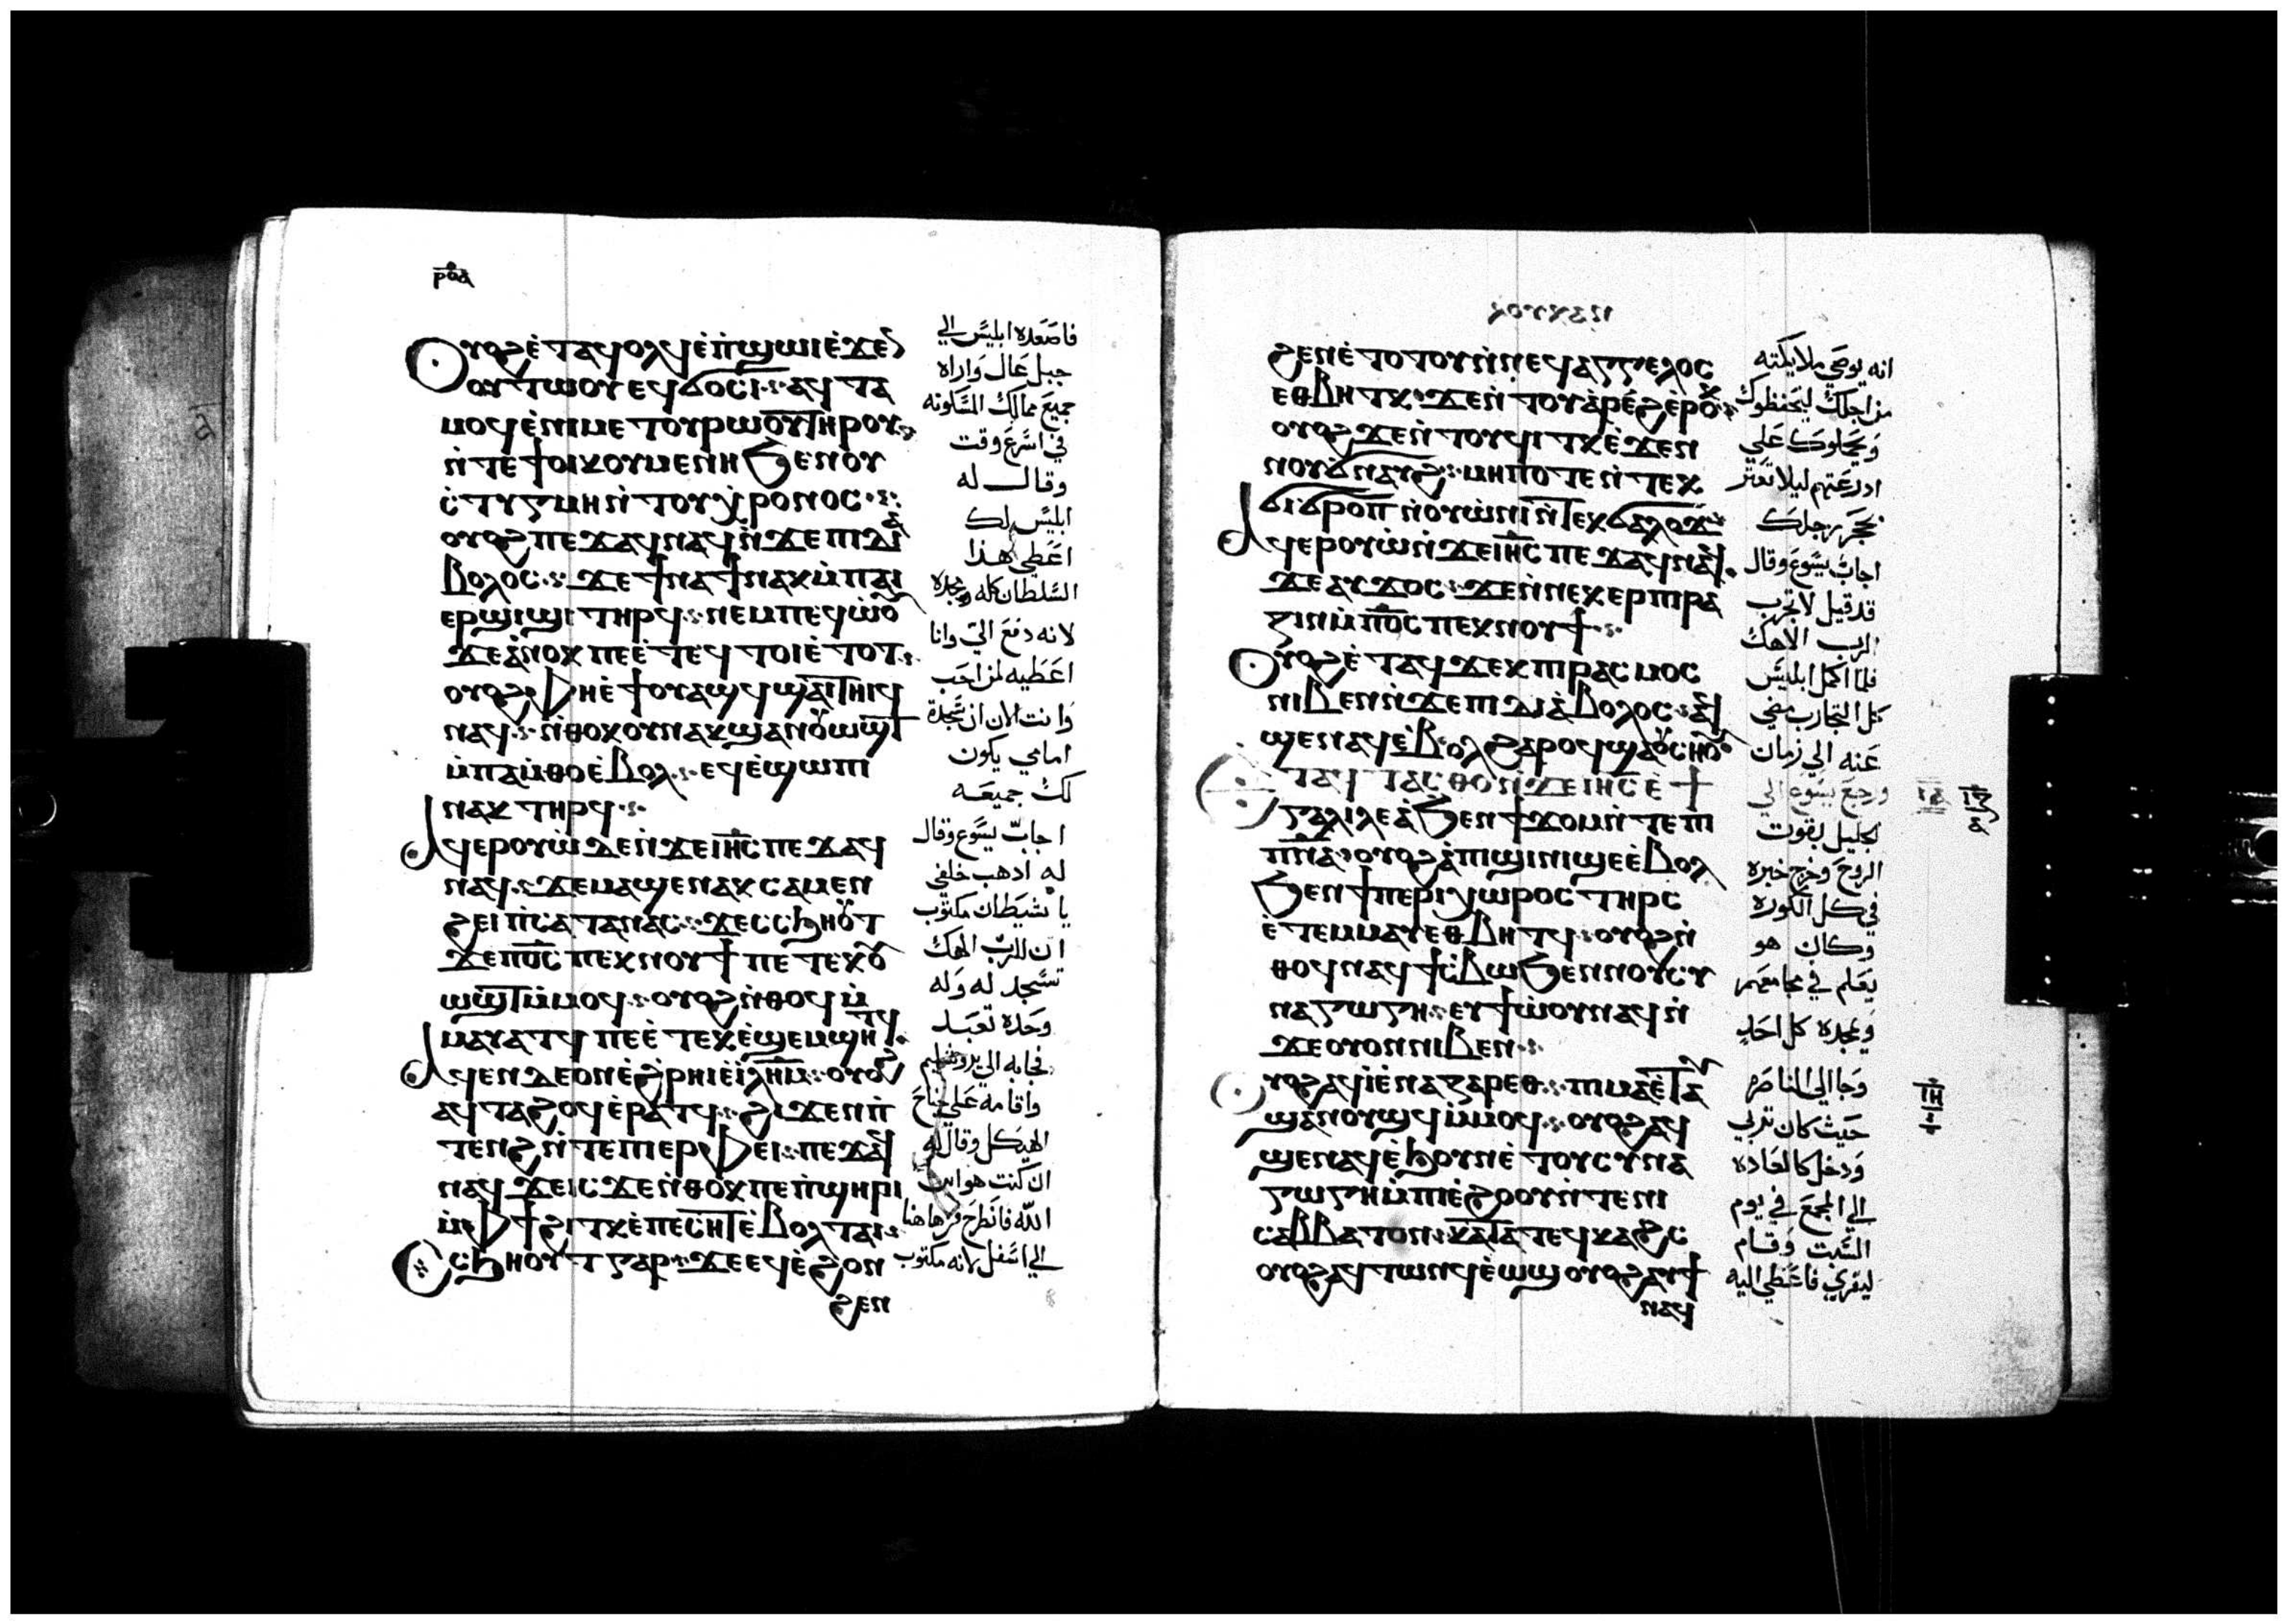 ⲣⲟⲁ
Ⲟⲩⲟϩ ⲉ̇ⲧⲁϥⲟⲗϥ ⲉ̇ⲡ̇ϣⲱⲓ ⲉ̇ϫⲉⲛ
ⲟⲩⲧⲱⲟⲩ ⲉϥϭⲟⲥⲓ ⲁϥⲧⲁ
ⲙⲟϥ ⲉ̇ⲛⲓⲙⲉⲧⲟⲩⲣⲱⲟⲩ ⲧⲏⲣⲟⲩ
ⲛ̇ⲧⲉ ϯⲟⲓⲕⲟⲩⲙⲉⲛⲏ ϧⲉⲛ ⲟⲩ
ⲥ̇ⲧⲩⲅⲙⲏ ⲛ̇ⲧⲟⲩⲭ̇ⲣⲟⲛⲟⲥ
ⲟⲩⲟϩ ⲡⲉϫⲁϥ ⲛⲁϥ ⲛ̇ϫⲉ ⲡⲓⲇⲓⲁ
ⲃⲟⲗⲟⲥ ϫⲉ ϯⲛⲁϯ ⲛⲁⲕ ⲙ̇ⲡⲁⲓ
ⲉⲣϣⲓϣⲓ ⲧⲏⲣϥ ⲛⲉⲙ ⲡⲉϥⲱ̇ⲟⲩ
ϫⲉ ⲁ̇ⲛⲟⲕ ⲡⲉ ⲉ̇ⲧⲉϥⲧⲟⲓ ⲉ̇ⲧⲟⲧ
ⲟⲩⲟϩ ⲫⲏ ⲉ̇ϯⲟⲩⲁϣϥ ϣⲁⲓⲧⲏⲓϥ
ⲛⲁϥ ⲛ̇ⲑⲟⲕ ⲟⲩⲛ ⲁⲕϣⲁⲛⲟⲩⲱϣⲧ
ⲙ̇ⲡⲁⲙ̇ⲑⲟ ⲉ̇ⲃⲟⲗ ⲉϥⲉ̇ϣⲱⲡⲓ
ⲛⲁⲕ ⲧⲏⲣϥ
Ⲁϥⲉⲣⲟⲩⲱ̇ ⲇⲉ ⲛ̇ϫⲉ ⲓⲏⲥ ⲡⲉϫⲁϥ
ⲛⲁϥ ϫⲉ ⲙⲁϣⲉⲛⲁⲕ ⲥⲁⲙⲉⲛ
ϩⲏⲓ ⲡ̇ⲥⲁⲧⲁⲛⲁⲥ ϫⲉ ⲥⲥϧⲏⲟⲩⲧ
ϫⲉ ⲡⲟⲥ ⲡⲉⲕⲛⲟⲩϯ ⲡⲉⲧⲉⲕⲟⲩ
ⲱϣⲧ ⲙ̇ⲙⲟϥ ⲟⲩⲟϩ ⲛ̇ⲑⲟϥ ⲙ̇
ⲙⲁⲩⲁⲧϥ ⲡⲉ ⲉ̇ⲧⲉⲕⲉ̇ϣⲉⲙϣⲏⲧϥ
Ⲁϥⲉⲛ ⲇⲉ ⲟⲛ ⲉ̇ϩⲣⲏⲓ ⲉ̇ⲓⲗⲏⲙ ⲟⲩⲟϩ
ⲁϥⲧⲁϩⲟϥ ⲉ̇ⲣⲁⲧϥ ϩⲓϫⲉⲛ ⲡ̇
ⲧⲉⲛϩ ⲛ̇ⲧⲉ ⲡⲓⲉⲣⲫⲉⲓ ⲡⲉϫⲁϥ
ⲛⲁϥ ϫⲉ ⲓⲥϫⲉ ⲛ̇ⲑⲟⲕ ⲡⲉ ⲡ̇ϣⲏⲣⲓ
ⲙ̇ⲫϯ ϩⲓⲧⲕ ⲉ̇ⲡⲉⲥⲏⲧ ⲉ̇ⲃⲟⲗ ⲧⲁⲓ
Ⲥⲥϧⲏⲟⲩⲧ ⲅⲁⲣ ϫⲉ ⲉϥⲉ̇ϩⲟⲛ
ϩⲉⲛ
فاصعده ابليس الي
جبل عال واراه
جميع ممالك المسكونه
في اسرع وقت
وقال له
ابليس لك
اعطي هذا
السلطان كله ومجده
لانه دفع الي وانا
اعطيه لمن احب
وانت الان ان سجدة
امامي يكون
لك جميعه
اجاب يسوع وقال
له ادهب خلفي
يا شيطان مكتوب
ان للرب الهك
تسجد له وله
وحده تعبد
فجابه الي يروشليم
واقامه علي جناح
الهيكل وقال له
ان كنت هو ابن
الله فانطرح من هاهنا
الي اسفل لانه مكتوب
ⲡⲉⲕⲛⲟⲩϯ
ϩⲉⲛ ⲉ̇ⲧⲟⲧⲟⲩ ⲛ̇ⲛⲉϥⲁⲅⲅⲉⲗⲟⲥ
ⲉⲑⲃⲏⲧⲕ ϫⲉ ⲛ̇ⲧⲟⲩⲁ̇ⲣⲉϩ ⲉ̇ⲣⲟⲕ
ⲟⲩⲟϩ ϫⲉ ⲛ̇ⲧⲟⲩϥⲓⲧⲕ ⲉ̇ϫⲉⲛ
ⲛⲟⲩϭⲛⲁⲩϩ ⲙⲏⲡⲟⲧⲉ ⲛ̇ⲧⲉⲕ
ϭⲓϭⲣⲟⲡ ⲛ̇ⲟⲩⲱ̇ⲛⲓ ⲛ̇ⲧⲉⲕϭⲁⲗⲟϫ
Ⲁϥⲉⲣⲟⲩⲱ̇ ⲛ̇ϫⲉ ⲓⲏⲥ ⲡⲉϫⲁϥ ⲛⲁϥ
ϫⲉ ⲁⲩϫⲟⲥ ϫⲉ ⲛ̇ⲛⲉⲕⲉⲣⲡⲓⲣⲁ
ⲍⲓⲛ ⲙ̇ⲡⲟⲥ ⲡⲉⲕⲛⲟⲩϯ
Ⲟⲩⲟϩ ⲉ̇ⲧⲁϥϫⲉⲕ ⲡⲓⲣⲁⲥⲙⲟⲥ
ⲛⲓⲃⲉⲛ ⲛ̇ϫⲉ ⲡⲓⲇⲓⲁ̇ⲃⲟⲗⲟⲥ ⲁϥ
ϣⲉⲛⲁϥ ⲉ̇ⲃⲟⲗ ϩⲁⲣⲟϥ ϣⲁ ⲟⲩⲥⲏⲟⲩ
Ⲟⲩⲟϩ ⲁϥⲧⲁⲥⲑⲟ ⲛ̇ϫⲉ ⲓⲏⲥ ⲉ̇ϯ
ⲅⲁⲗⲓⲗⲉⲁ̇ ϧⲉⲛ ϯϫⲟⲙ ⲛ̇ⲧⲉ ⲡⲓ
ⲡⲛⲁ ⲟⲩⲟϩ ⲁ̇ ⲡⲓϣⲓⲛⲓ ϣⲉ ⲉ̇ⲃⲟⲗ
ϧⲉⲛ ϯⲡⲉⲣⲓⲭⲱⲣⲟⲥ ⲧⲏⲣⲥ
ⲉ̇ⲧⲉⲙⲙⲁⲩ ⲉⲑⲃⲏⲧϥ ⲟⲩⲟϩ ⲛ̇
ⲑⲟϥ ⲛⲁϥϯⲥ̇ⲃⲱ ϧⲉⲛ ⲛⲟⲩⲥⲩ
ⲛⲁⲅⲱⲅⲏ ⲉⲩϯⲱ̇ⲟⲩ ⲛⲁϥ ⲛ̇
ϫⲉ ⲟⲩⲟⲛ ⲛⲓⲃⲉⲛ
Ⲟⲩⲟϩ ⲁϥⲓ̇ ⲉ̇ⲛⲁⲍⲁⲣⲉⲑ ⲡⲓⲙⲁ ⲉ̇ⲧⲁⲩ
ϣⲁⲛⲟⲩϣϥ ⲙ̇ⲙⲟϥ ⲟⲩⲟϩ ⲁϥ
ϣⲉⲛⲁϥ ⲉ̇ϧⲟⲩⲛ ⲉ̇ⲧⲟⲩⲥⲩⲛⲁ
ⲅⲱⲅⲏ ⲙ̇ⲡⲓⲉ̇ϩⲟⲟⲩ ⲛ̇ⲧⲉ ⲛⲓ
ⲥⲁⲃⲃⲁⲧⲟⲛ ⲕⲁⲧⲁ ⲧⲉϥⲕⲁϩⲥ
ⲟⲩⲟϩ ⲁϥⲧⲱⲛϥ ⲉ̇ⲱϣ ⲟⲩⲟϩ ⲁⲩϯ
ⲛⲁϥ
انه يوصي ملايكته
من اجلك ليحفظوك
ويحملوك علي
ادرعتهم ليلا تعتر
بحجر رجلك
اجاب يسوع وقال
قد قيل لا تجرب
الرب الاهك
فلما اكمل ابليس
كل التجارب مضي
عنه الي زمان
ورجع يسوع الي
الجليل بقوت
الروح وخرج خبره
في كل الكوره
وكان هو
يعلم في مجامعهم
ويمجده كل احد
وجا الي الناصره
حيث كان تربي
ودخل كالعاده
الي المجمع في يوم
السبت وقام
ليقري فاعطي اليه
ⲓⲇ
ⲓⲍ
ⲁ
ⲓⲏ
ⲓ